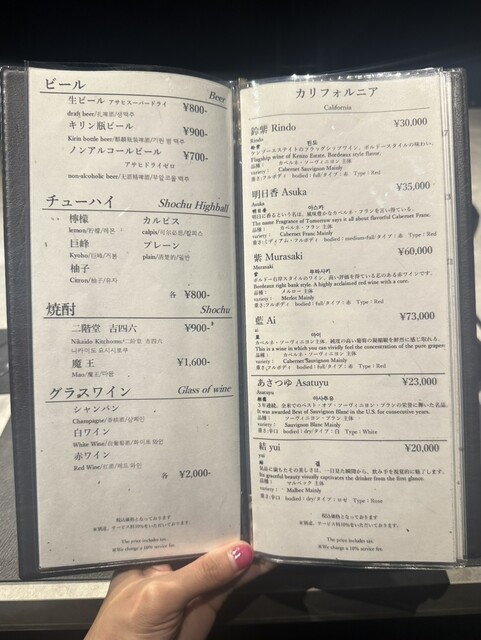 ビール
Beer
生ビール アサヒスーパードライ ¥800-
draft beer/扎啤酒/생맥주
キリン瓶ビール ¥900-
Kirin bottle beer/麒麟瓶装啤酒/기린 병 맥주
ノンアルコールビール ¥700-
アサヒドライゼロ
non-alcoholic beer/无酒精啤酒/무알코올 비루
チューハイ
Shochu Highball
檸檬 カルピス
lemon/柠檬/레몬 calpis/可尔必思/칼피스
巨峰 プレーン
Kyoho/巨峰/거봉 plain/清楚的/일반
柚子
Citron/柚子/유자
各 ¥800-
焼酎
Shochu
二階堂 吉四六 ¥900-
Nikaido Kitchomu/二階堂 吉四六
니카이도 요시시로부
魔王 ¥1,600-
Mao/魔王/마왕
グラスワイン
Glass of wine
シャンパン
Champagne/香槟酒/샴페인
白ワイン
White Wine/白葡萄酒/화이트 와인
赤ワイン
Red Wine/红酒/레드 와인
各 ¥2,000-
税込価格となっております
※別途、サービス料10%をいただいております。
The price includes tax.
※We charge a 10% service fee.
カリフォルニア
California
鈴紫 Rindo ¥30,000
Rindo
린도
ケンゾーエステイトのフラッグシップワイン。ボルドースタイルの味わい。
Flagship wine of Kenzo Estate. Bordeaux style flavor.
品種： カベルネ・ソーヴィニヨン 主体
variety： Cabernet Sauvignon Mainly
重さ:フルボディ bodied：full/タイプ：赤 Type：Red
明日香 Asuka ¥35,000
Asuka
明日香 아스카
明日に香るという名は、風味豊かなカベルネ・フランを言い得ている。
The name Fragrance of Tomorrow says it all about flavorful Cabernet Franc.
品種： カベルネ・フラン 主体
variety： Cabernet Franc Mainly
重さ:ミディアム・フルボディ bodied：medium-full/タイプ：赤 Type：Red
紫 Murasaki ¥60,000
Murasaki
紫 무라사키
ボルドー右岸スタイルのワイン。高い評価を得ている芯のある赤ワインです。
Bordeaux right bank style. A highly acclaimed red wine with a core.
品種： メルロー 主体
variety： Merlot Mainly
重さ:フルボディ bodied：full/タイプ：赤 Type：Red
藍 Ai ¥73,000
ai
蓝 아이
カベルネ・ソーヴィニヨン主体。純度の高い葡萄の凝縮感を鮮烈に感じ取れる。
This is a wine in which you can vividly feel the concentration of the pure grapes.
品種： カベルネ・ソーヴィニヨン 主体
variety： Cabernet Sauvignon Mainly
重さ:フルボディ bodied：full/タイプ：赤 Type：Red
あさつゆ Asatuyu ¥23,000
Asatuyu
朝露 아사츠유
3年連続、全米でのベスト・オブ・ソーヴィニヨン・ブランの栄誉に輝いた名品。
It was awarded Best of Sauvignon Blanc in the U.S. for consecutive years.
品種： ソーヴィニヨン・ブラン 主体
variety： Sauvignon Blanc Mainly
重さ:辛口 bodied：dry/タイプ：白 Type：White
結 yui ¥20,000
yui
気品に満ちたその美しさは、一目見た瞬間から、飲み手を視覚的に魅了します。
Its graceful beauty visually captivates the drinker from the first glance.
品種： マルベック 主体
variety： Malbec Mainly
重さ:辛口 bodied：dry/タイプ：ロゼ Type：Rose
税込価格となっております
※別途、サービス料10%をいただいております。
The price includes tax.
※We charge a 10% service fee.